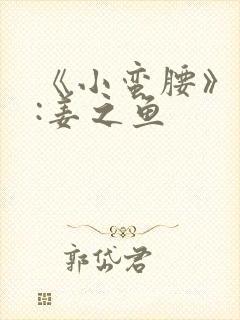 《小蛮腰》
:姜之鱼
郭岱君